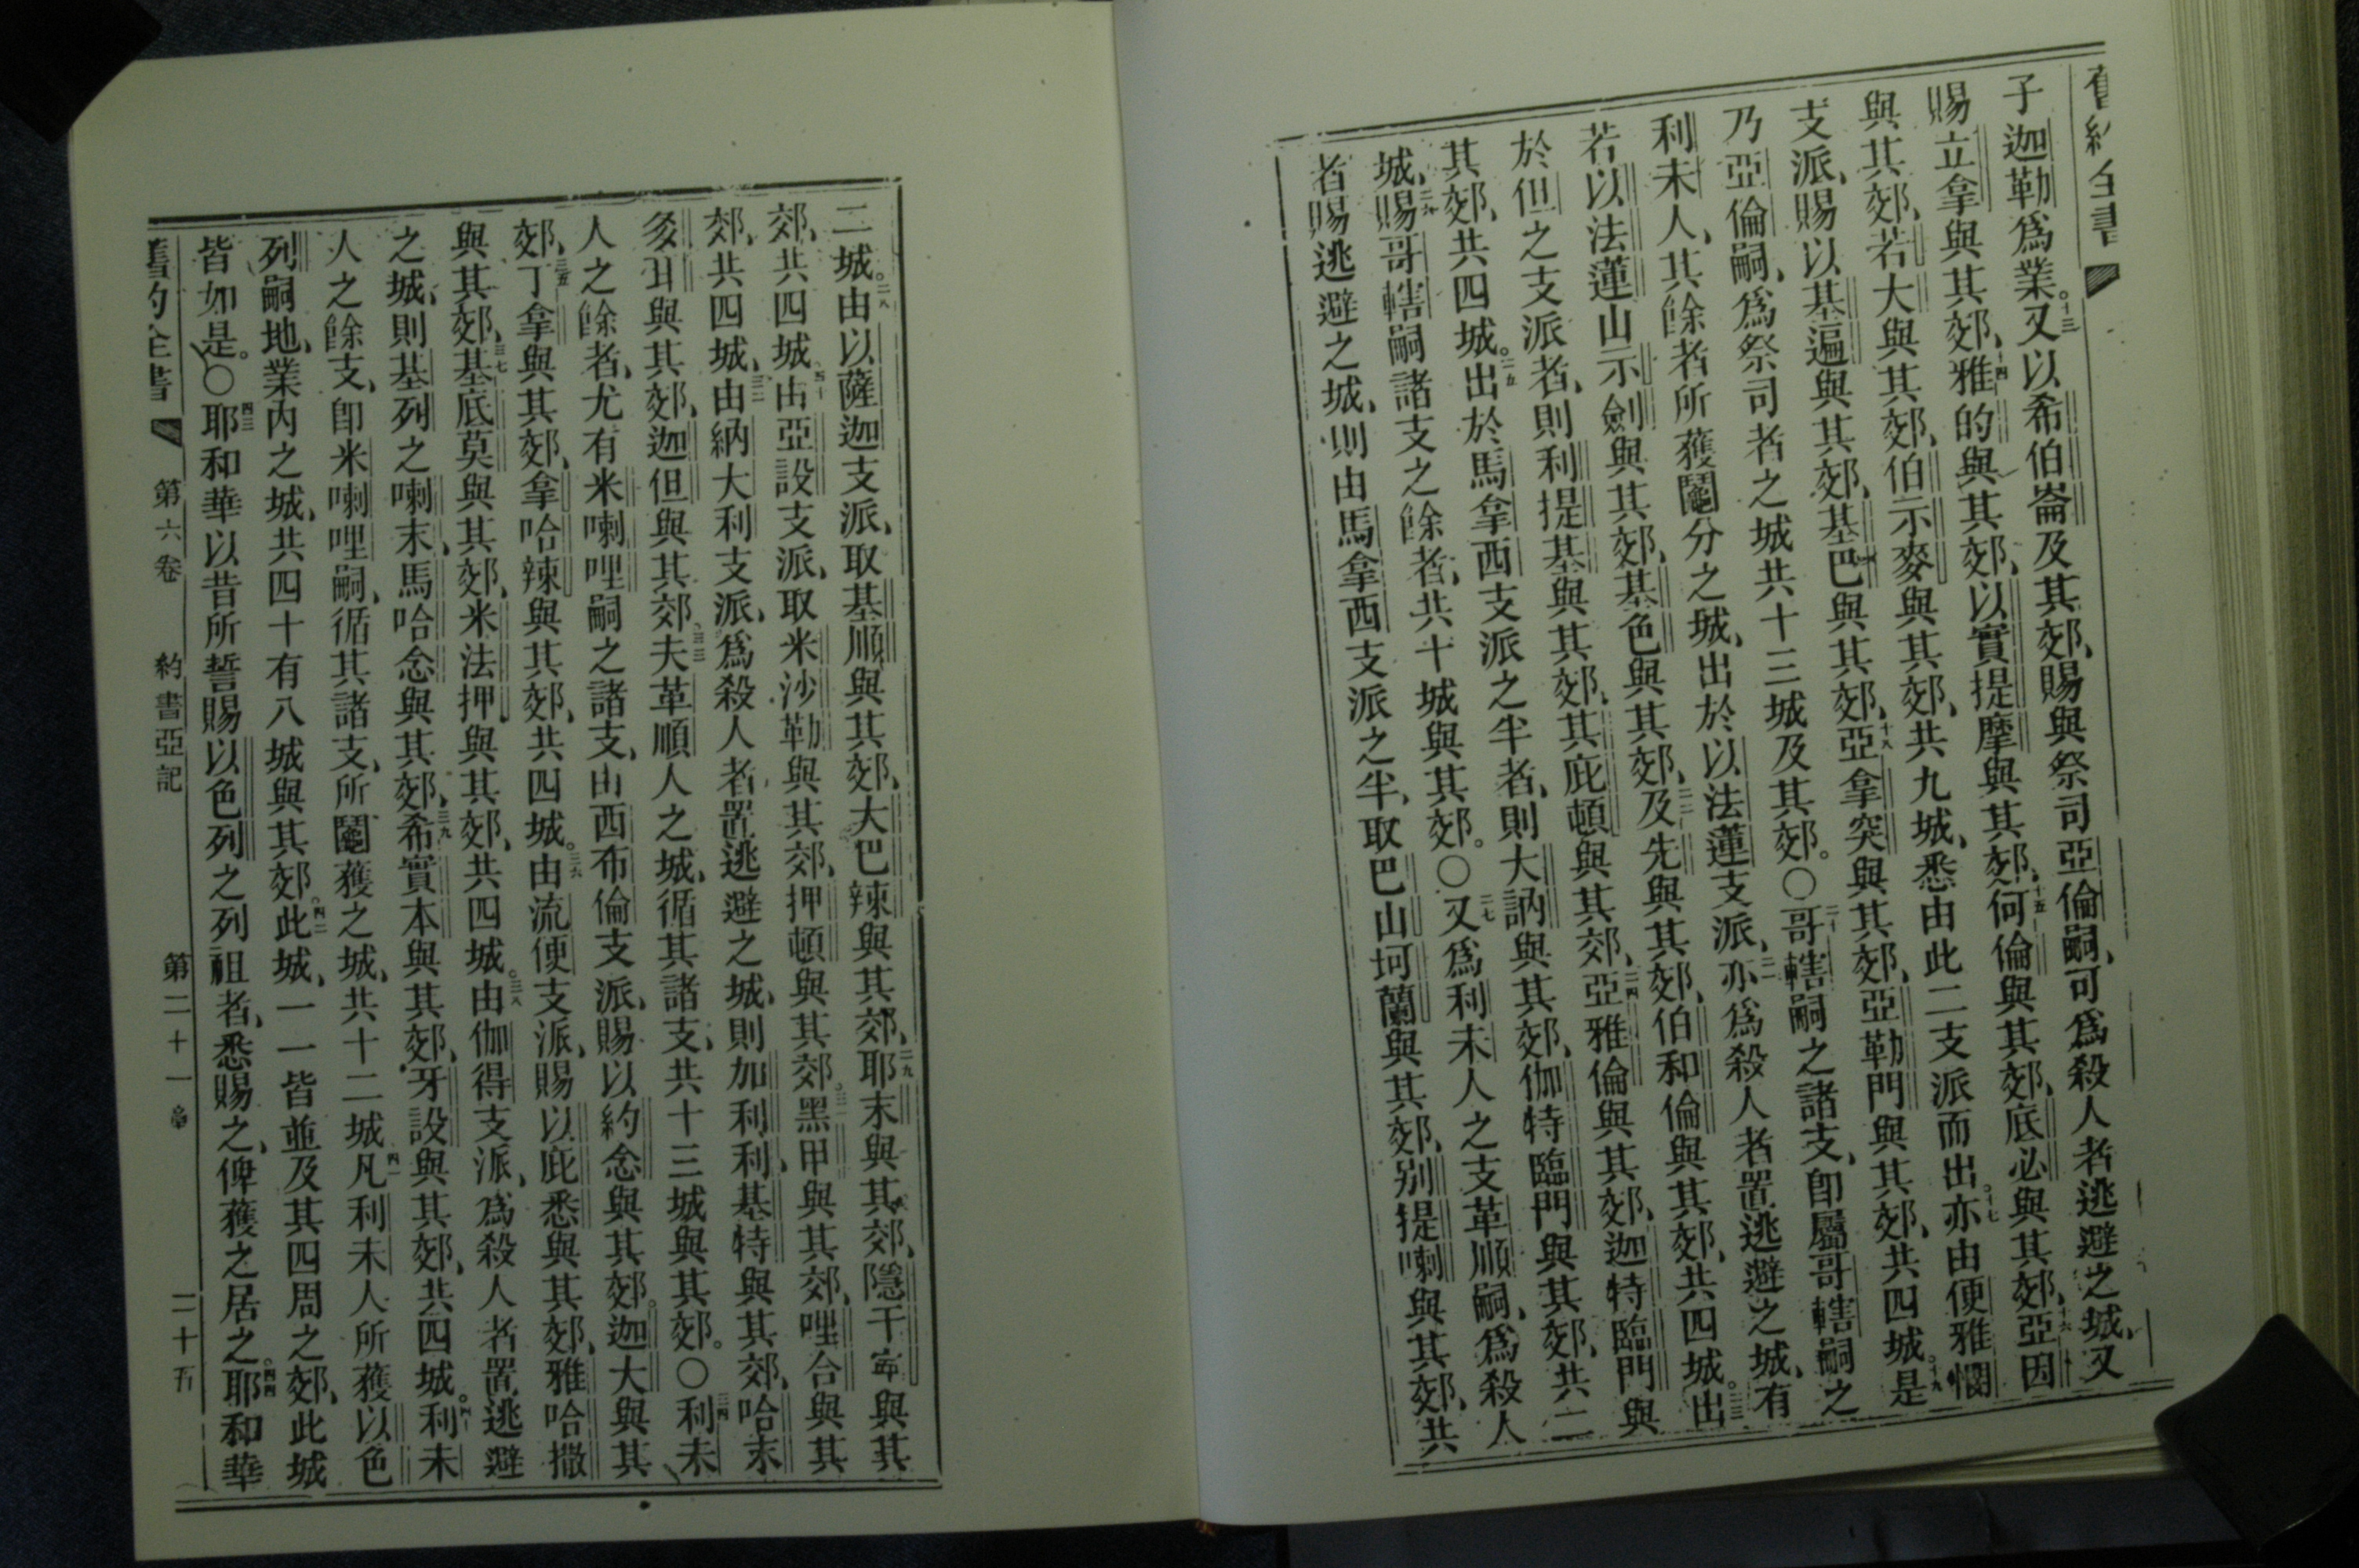 舊約全書
子迦勒爲業。十三又以希伯崙及其郊、賜與祭司亞倫嗣、可爲殺人者逃避之城、又
賜立拿與其郊、十四雅的與其郊、以實提摩與其郊、十五何倫與其郊、底必與其郊、十六亞因
與其郊、若大與其郊、伯示麥與其郊、共九城、悉由此二支派而出。十七亦由便雅憫
支派、賜以基遍與其郊、基巴與其郊、十八亞拿突與其郊、亞勒門與其郊、共四城。十九是
乃亞倫嗣、爲祭司者之城共十三城及其郊。〇二十哥轄嗣之諸支、卽屬哥轄嗣之
利未人、其餘者所獲鬮分之城、出於以法蓮支派、二一亦爲殺人者置逃避之城、有
若以法蓮山示劍與其郊、基色與其郊、二二及先與其郊、伯和倫與其郊、共四城。二三出
於但之支派者、則利提基與其郊、其庇頓與其郊、二四亞雅倫與其郊、迦特臨門與
其郊、共四城。二五出於馬拿西支派之半者、則大訥與其郊、伽特臨門與其郊、共二
城、二六賜哥轄嗣諸支之餘者、共十城與其郊。〇二七又爲利未人之支革順嗣、爲殺人
者賜逃避之城、則由馬拿西支派之半、取巴山坷蘭與其郊、别提喇與其郊、共
二城。二八由以薩迦支派、取基順與其郊、大巴辣與其郊、二九耶末與其郊、隱干寗與其
郊、共四城、四十由亞設支派、取米沙勒與其郊、押頓與其郊、三一黑甲與其郊、哩合與其
郊、共四城、三二由納大利支派、爲殺人者置逃避之城、則加利利、基特與其郊、哈末
與其郊、迦但與其郊、三三夫革順人之城、循其諸支、共十三城與其郊。〇三四利未
人之餘者、尤有米喇哩嗣之諸支、由西布倫支派、賜以約念與其郊。迦大與其
郊、三五丁拿與其郊、拿哈辣與其郊、共四城。三六由流便支派、賜以庇悉與其郊、雅哈撒
與其郊、三七基底莫與其郊、米法押與其郊、共四城。三八由伽得支派、爲殺人者置逃避
之城、則基列之喇末、馬哈念與其郊、三九希實本與其郊、牙設與其郊、共四城。四十利未
人之餘支、卽米喇哩嗣、循其諸支、所鬮獲之城、共十二城四一凡利未人所獲以色
列嗣地、業內之城、共四十有八城與其郊。四二此城、一一皆並及其四周之郊、此城
皆如是。〇四三耶和華以昔所誓賜以色列之列祖者、悉賜之、俾獲之居之。四四耶和華
舊約全書 第六卷 約書亞記 第二十一章 二十五